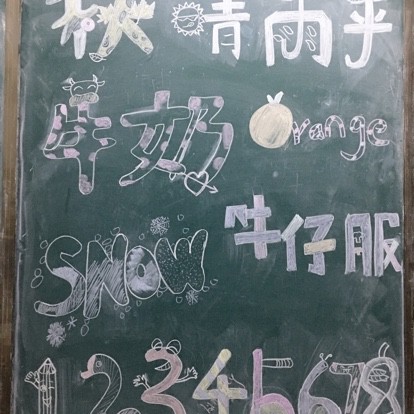 秋 晴雨
牛奶 Orange
牛仔服
SNOW
12345678